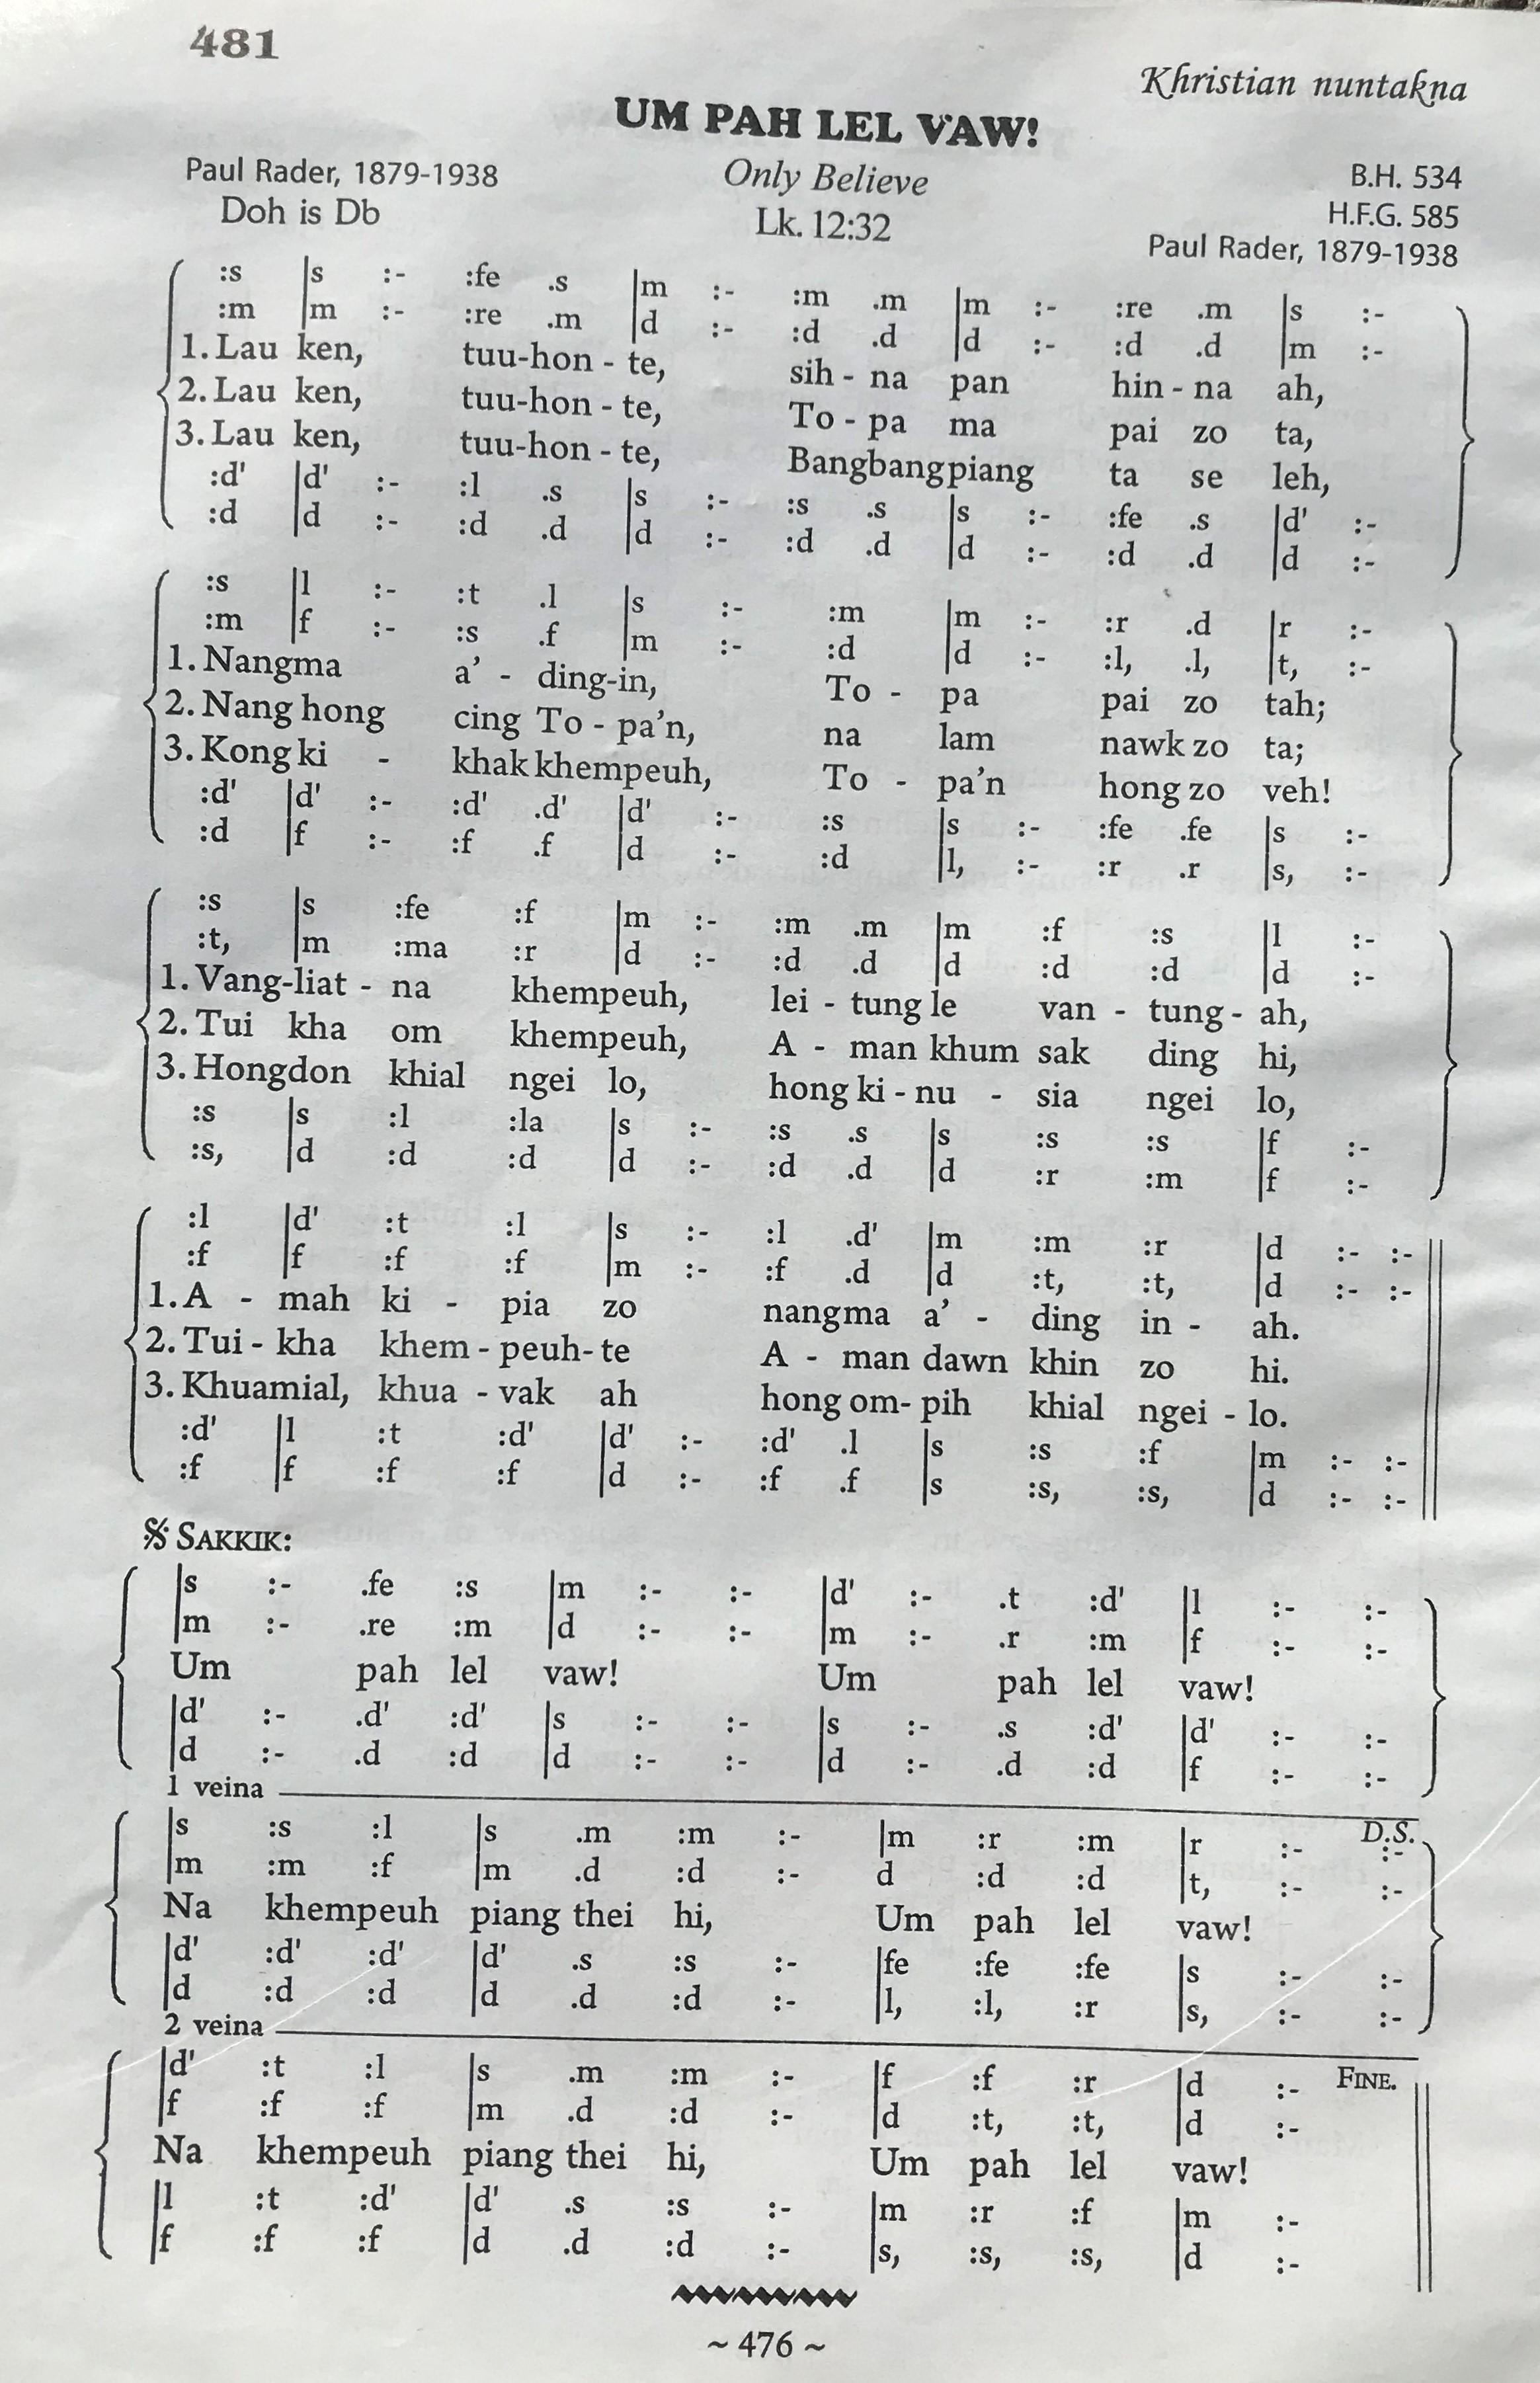 481
Khristian nuntakna
UM PAH LEL VAW!
Paul Rader, 1879-1938 Only Believe B.H. 534
Doh is Db Lk. 12:32 H.F.G. 585
Paul Rader, 1879-1938
:s |s :- :fe .s |m :- :m .m |m :- :re .m |s :-
:m |m :- :re .m |d :- :d .d |d :- :d .d |m :-
1. Lau ken, tuu-hon - te, sih - na pan hin - na ah,
2. Lau ken, tuu-hon - te, To - pa ma pai zo ta,
3. Lau ken, tuu-hon - te, Bangbangpiang ta se leh,
:d' |d' :- :l .s |s :- :s .s |s :- :fe .s |d' :-
:d |d :- :d .d |d :- :d .d |d :- :d .d |d :-
:s |l :- :t .l |s :- :m |m :- :r .d |r :-
:m |f :- :s .f |m :- :d |d :- :l, .l, |t, :-
1. Nangma a' - ding-in, To - pa pai zo tah;
2. Nang hong cing To - pa'n, na lam nawk zo ta;
3. Kong ki - khak khempeuh, To - pa'n hong zo veh!
:d' |d' :- :d' .d' |d' :- :s |s :- :fe .fe |s :-
:d |f :- :f .f |d :- :d |l, :- :r .r |s, :-
:s |s :fe :f |m :- :m .m |m :f :s |l :-
:t, |m :ma :r |d :- :d .d |d :d :d |d :-
1. Vang-liat - na khempeuh, lei - tung le van - tung - ah,
2. Tui kha om khempeuh, A - man khum sak ding hi,
3. Hongdon khial ngei lo, hong ki - nu - sia ngei lo,
:s |s :l :la |s :- :s .s |s :s :s |f :-
:s, |d :d :d |d :- :d .d |d :r :m |f :-
:l |d' :t :l |s :- :l .d' |m :m :r |d :- :-
:f |f :f :f |m :- :f .d |d :t, :t, |d :- :-
1. A - mah ki - pia zo nangma a' - ding in - ah.
2. Tui - kha khem - peuh- te A - man dawn khin zo hi.
3. Khuamial, khua - vak ah hong om- pih khial ngei - lo.
:d' |l :t :d' |d' :- :d' .l |s :s :f |m :- :-
:f |f :f :f |d :- :f .f |s :s, :s, |d :- :-
𝄋 SAKKIK:
|s :- .fe :s |m :- :- |d' :- .t :d' |l :- :-
|m :- .re :m |d :- :- |m :- .r :m |f :- :-
Um pah lel vaw! Um pah lel vaw!
|d' :- .d' :d' |s :- :- |s :- .s :d' |d' :- :-
|d :- .d :d |d :- :- |d :- .d :d |f :- :-
1 veina
D.S.
|s :s :l |s .m :m :- |m :r :m |r :- :-
|m :m :f |m .d :d :- d :d :d |t, :- :-
Na khempeuh piang thei hi, Um pah lel vaw!
|d' :d' :d' |d' .s :s :- |fe :fe :fe |s :- :-
|d :d :d |d .d :d :- |l, :l, :r |s, :- :-
2 veina
|d' :t :l |s .m :m :- |f :f :r |d :- FINE.
|f :f :f |m .d :d :- |d :t, :t, |d :-
Na khempeuh piang thei hi, Um pah lel vaw!
|l :t :d' |d' .s :s :- |m :r :f |m :-
|f :f :f |d .d :d :- |s, :s, :s, |d :-
~ 476 ~